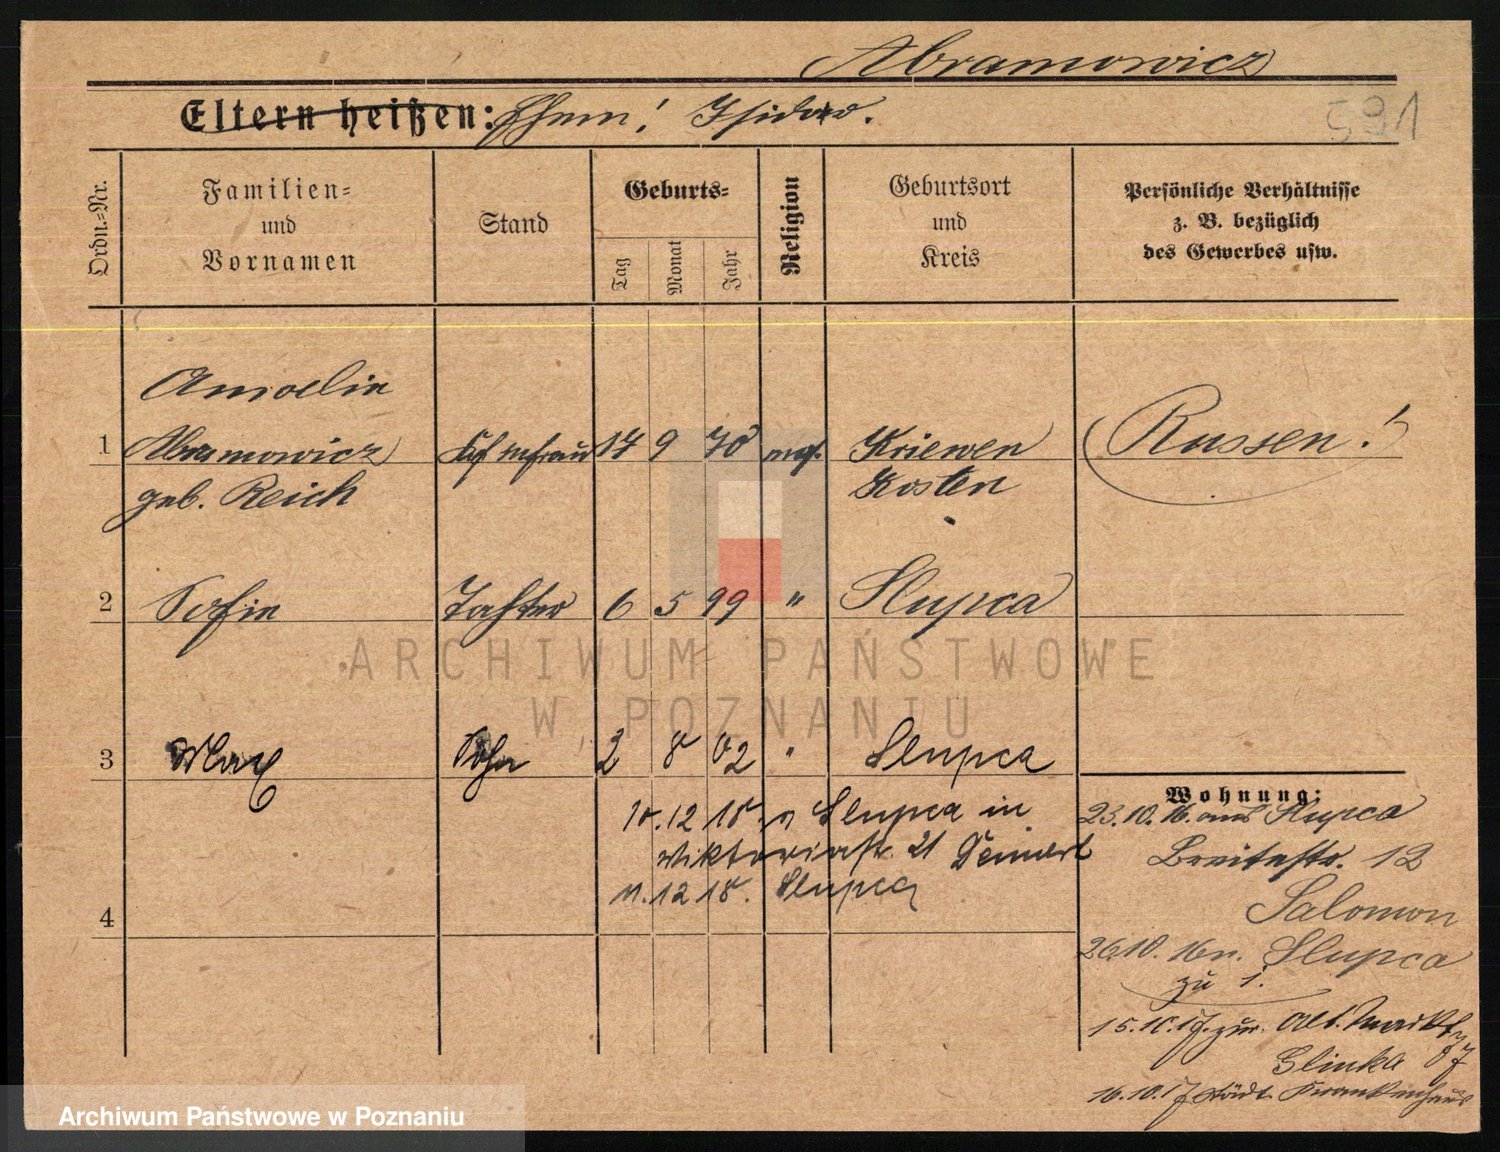 Abramowicz
Eltern heißen: Ehem: Isidor.
591
Ordn.-Nr.
Familien-
und
Vornamen
Stand
Geburts-
Tag
Monat
Jahr
Religion
Geburtsort
und
Kreis
Persönliche Verhältnisse
z. B. bezüglich
des Gewerbes usw.
Amelie
1 Abramowicz 17 9 70 mos. Kriewen
geb. Reich Kosten
Russen!
2 Sofie Tochter 6 5 99 " Slupca
3 Max Sohn 2 8 02 " Slupca
Wohnung:
10.12 18. v Slupca in
Wiktoriastr. 21
11.12 18. Slupca
4
23.10.16. aus Slupca
Breitestr. 12
Salomon
26.10.16 n. Slupca
zu 1.
15.10.17. zur. Alt. Markt
Glinka
16.10.17 städt. Krankenhaus
ARCHIWUM PAŃSTWOWE
W POZNANIU
Archiwum Państwowe w Poznaniu